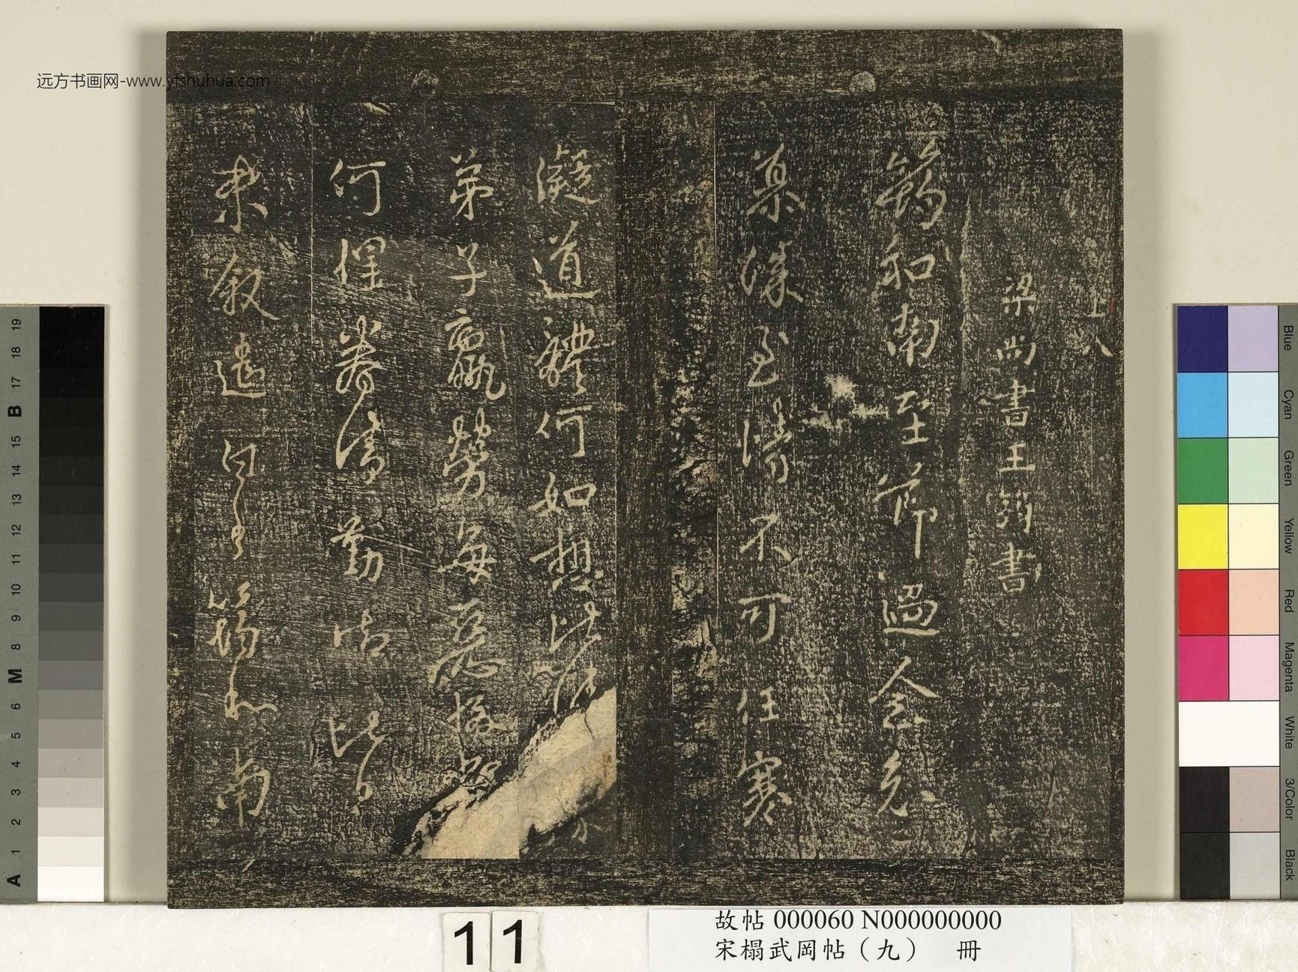 远方书画网-www.yfshuhua.com
上八
梁尚書王筠書
筠和南至節過念
慕深至情不可任寒
凝道體何如想比
弟子羸勞每惡
何理眷情勤
未敘遙 筠和南
19
18
17
B
15
14
13
12
11
10
9
8
M
6
5
4
3
2
1
A
Blue
Cyan
Green
Yellow
Red
Magenta
White
3/Color
Black
11
故帖 000060 N000000000
宋榻武岡帖（九） 冊